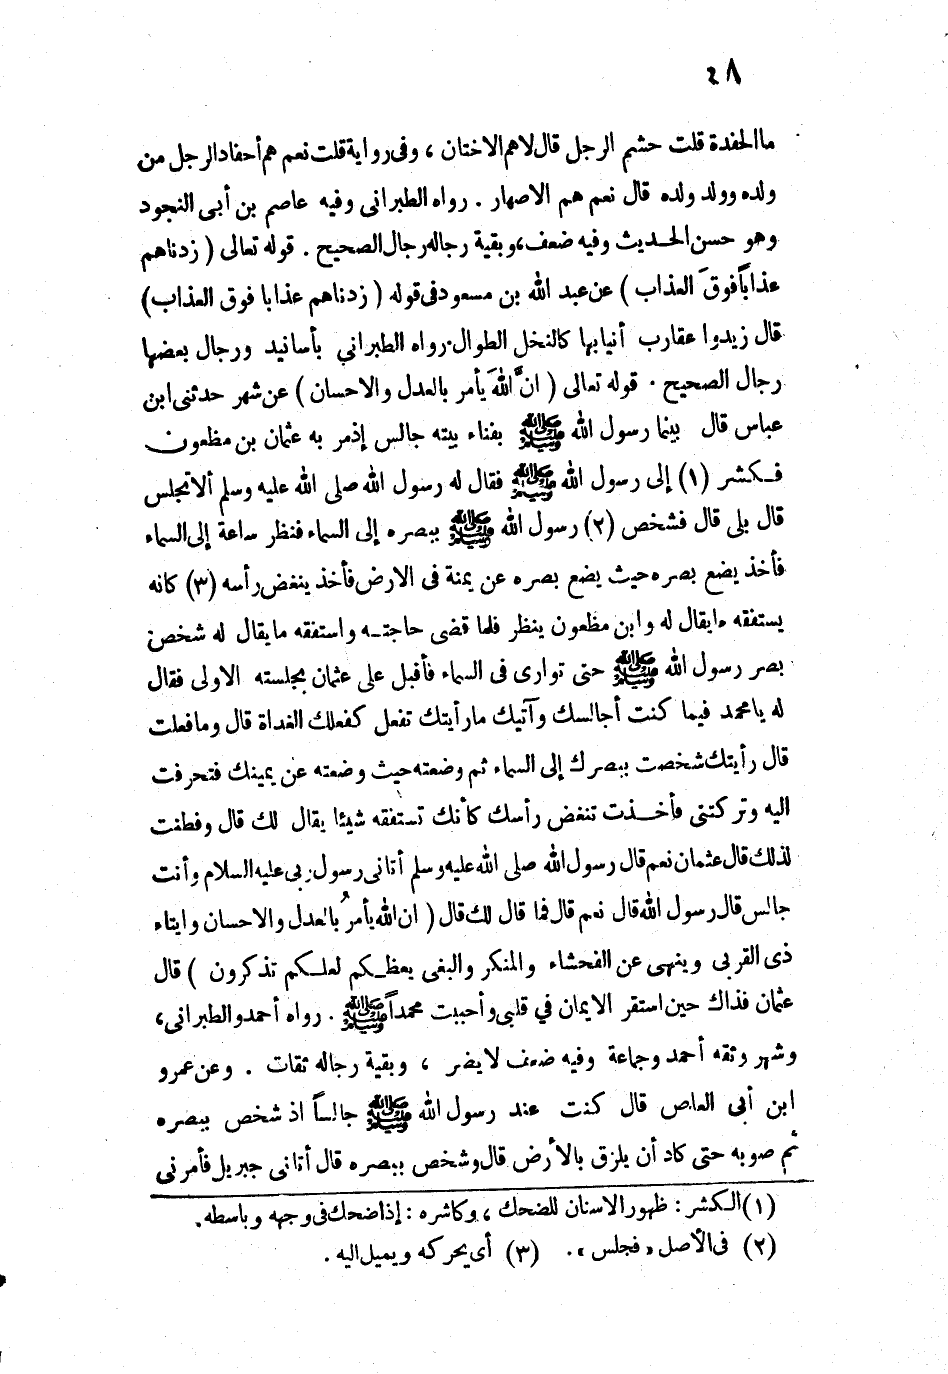 ٤٨
ما الحفدة قلت حشم الرجل قال لا هم الاختان ، وفى رواية قلت نعم هم أحفاد الرجل من
ولده وولد ولده قال نعم هم الاصهار . رواه الطبرانى وفيه عاصم بن أبى النجود
وهو حسن الحديث وفيه ضعف، وبقية رجاله رجال الصحيح . قوله تعالى ( زدناهم
عذاباً فوقَ العذاب ) عن عبد الله بن مسعود فى قوله ( زدناهم عذابا فوق العذاب )
قال زيدوا عقارب أنيابها كالنخل الطوال . رواه الطبراني بأسانيد ورجال بعضها
رجال الصحيح . قوله تعالى ( انَّ اللهَ يأمر بالعدل والاحسان ) عن شهر حدثنى ابن
عباس قال بينما رسول الله ﷺ بفناء بيته جالس إذ مر به عثمان بن مظعون
فكشر (١) إلى رسول الله ﷺ فقال له رسول الله صلى الله عليه وسلم ألا تجلس
قال بلى قال فشخص (٢) رسول الله ﷺ ببصره إلى السماء فنظر ساعة إلى السماء
فأخذ يضع بصره حيث يضع بصره عن يمنة فى الارض فأخذ ينغض رأسه (٣) كانه
يستفقه ما يقال له وابن مظعون ينظر فلما قضى حاجته واستفقه ما يقال له شخص
بصر رسول الله ﷺ حتى توارى فى السماء فأقبل على عثمان بجلسته الاولى فقال
له يا محمد فيما كنت أجالسك وآتيك ما رأيتك تفعل كفعلك الغداة قال وما فعلت
قال رأيتك شخصت ببصرك إلى السماء ثم وضعته حيث وضعته عن يمينك فتحرفت
اليه وتركتنى فأخذت تنغض رأسك كأنك تستفقه شيئا يقال لك قال وفطنت
لذلك قال عثمان نعم قال رسول الله صلى الله عليه وسلم أتانى رسول ربى عليه السلام وأنت
جالس قال رسول الله قال نعم قال فما قال لك قال ( ان الله يأمرُ بالعدل والاحسان وايتاء
ذى القربى وينهى عن الفحشاء والمنكر والبغى يعظكم لعلكم تذكرون ) قال
عثمان فذاك حين استقر الايمان في قلبي وأحببت محمداً ﷺ . رواه أحمد والطبرانى ،
وشهر وثقه أحمد وجماعة وفيه ضعف لا يضر ، وبقية رجاله ثقات . وعن عمرو
ابن أبى العاص قال كنت عند رسول الله ﷺ جالساً اذ شخص ببصره
ثم صوبه حتى كاد أن يلزق بالأرض قال وشخص ببصره قال أتانى جبريل فأمرنى
(١) الكشر : ظهور الاسنان للضحك ، وكاشره : إذا ضحك فى وجهه وباسطه .
(٢) فى الأصل « فجلس » . (٣) أى يحركه ويميل اليه .